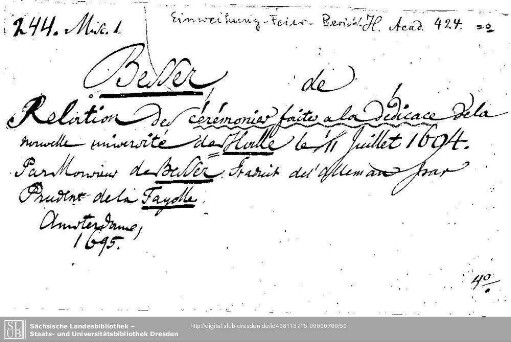 244. Misc. 1. Einweihung-Feier-Bericht H. Acad. 424.
Besser, de
Relation des cérémonies faites a la dédicace de la
nouvelle université de Halle le 1/11 Juillet 1694.
Par Monsieur de Besser. Traduit de l'Alleman par
Prudent de la Fayolle.
Amsterdame,
1695.
4o.
Sächsische Landesbibliothek –
Staats- und Universitätsbibliothek Dresden